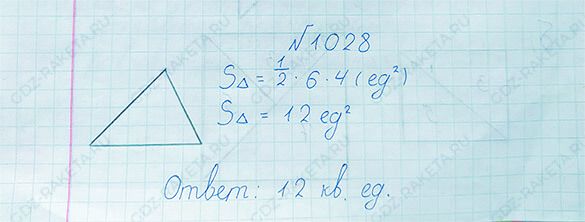 №1028
S△ = 1/2 · 6 · 4 (ед²)
S△ = 12 ед²
Ответ: 12 кв. ед.
GDZ-RAKETA.RU